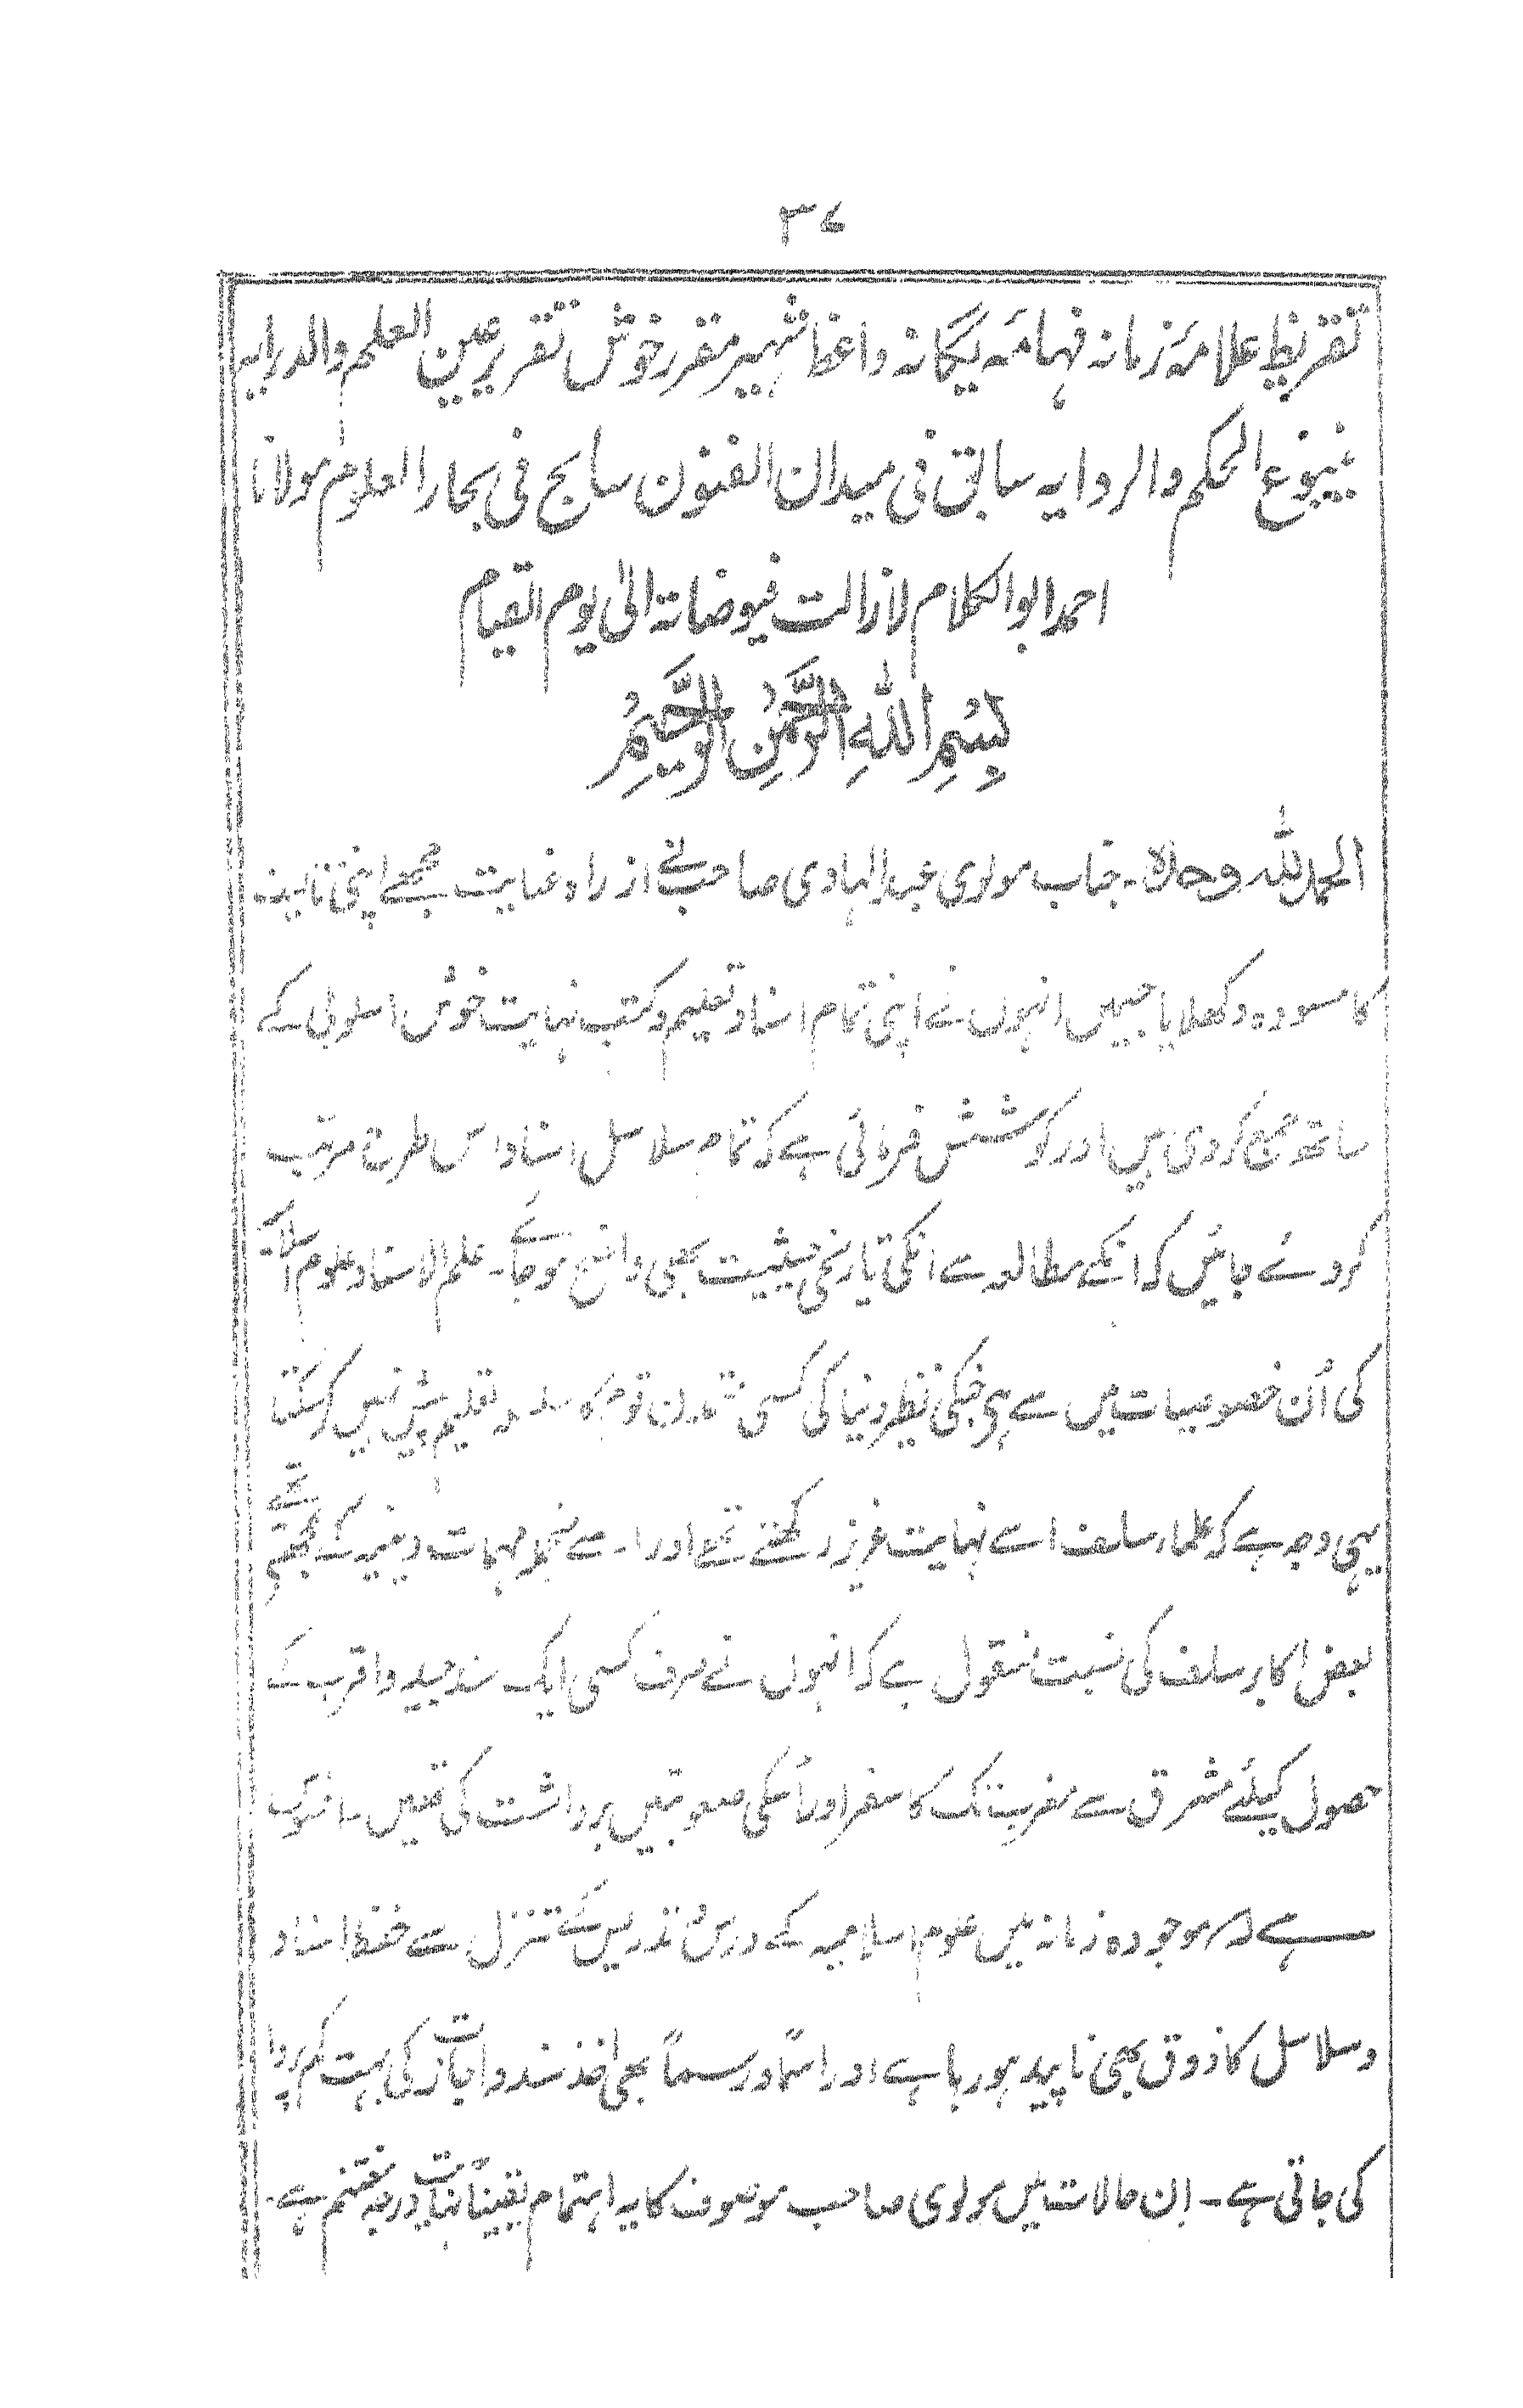 ۳۷
تقریظ علامۂ زمانہ فہامۂ یگانہ واعظ شہیر مقرر خوش تقریر عین العلم والدرایہ
ینبوع الحکم والروایہ سابق فی میدان الفنون سابح فی بحار العلوم مولانا
احمد ابو الکلام لازالت فیوضاتہ الیٰ یوم القیام
بِسْمِ اللّٰهِ الرَّحْمٰنِ الرَّحِیْمِ
الحمد للّٰہ وحدہ۔ جناب مولوی عبدالہادی صاحب نے از راہ عنایت مجھے اپنی تالیف
کا مسودہ دکھلایا جسمیں انہوں نے اپنی تمام اسناد تعلیم و کتب نہایت خوش اسلوبی کے
ساتھ جمع کردی ہیں اور کوشش فرمائی ہے کہ تمام سلاسل اسناد اس طرح مرتب
کردئے جائیں کہ انکے مطالعہ سے انکی تاریخی حیثیت بھی واضح ہوجائے۔ علم الاسناد علوم اسلامیہ
کی اُن خصوصیات میں سے ہی جنکی نظیر دنیا کی کسی متمدن قوم کا سلسلہ تعلیم پیش نہیں کرسکتا
یہی وجہ ہے کہ علماء سلف اسے نہایت عزیز رکھتے تھے اور اسے منجملہ مہمات دینیہ کے سمجھتے تھے
بعض اکابر سلف کی نسبت منقول ہے کہ انہوں نے صرف کسی ایک سند جید و اقرب کے
حصول کیلئے مشرق سے مغرب تک کا سفر اور اُسکی صعوبتیں برداشت کی تھیں۔ افسوس
ہے کہ موجودہ زمانہ میں علوم اسلامیہ کے درس و تدریس کے تنزل سے حفظ اسناد
و سلاسل کا ذوق بھی ناپید ہو رہا ہے اور اسماً و رسماً بھی اخذ سند و اجازت کی بہت کم پروا
کی جاتی ہے۔ اِن حالات میں مولوی صاحب موصوف کا یہ اہتمام یقیناً نہایت درجہ مغتنم ہے۔